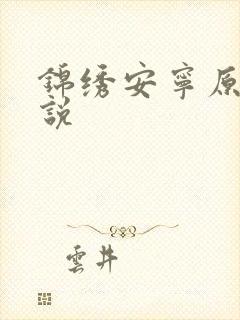 錦绣安寧原
說
雲井